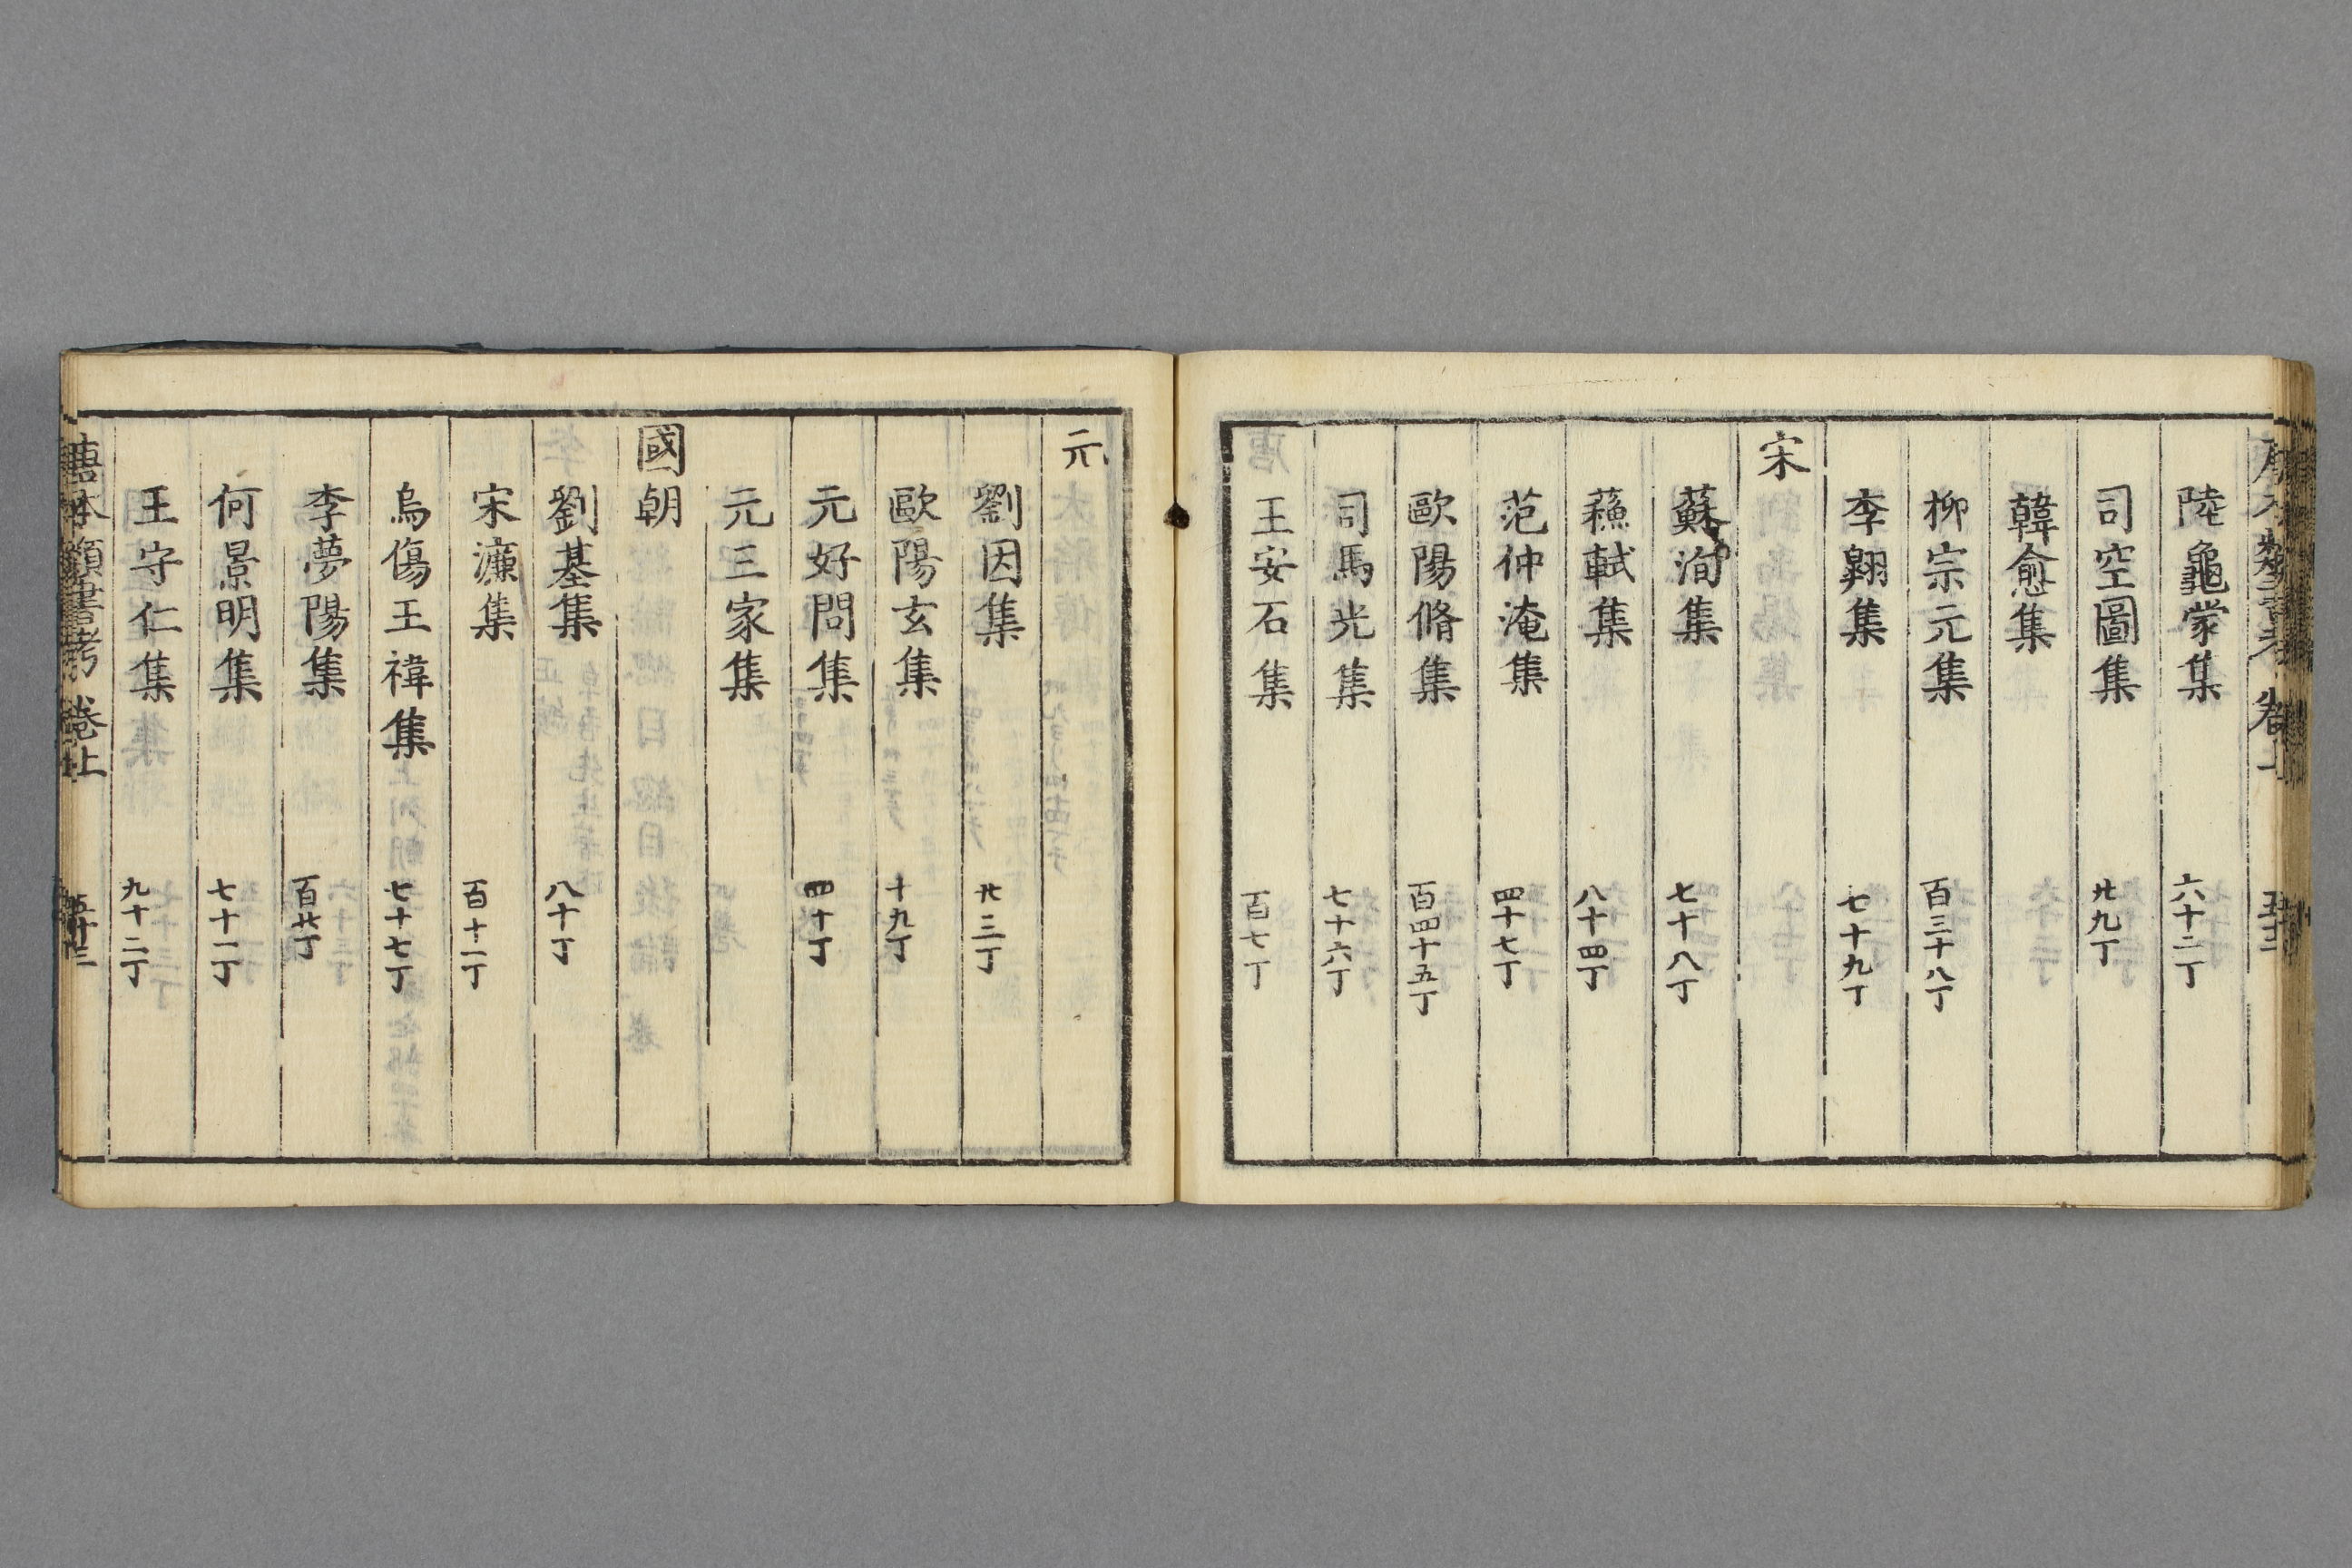 陸龜蒙集 六十二丁
司空圖集 廿九丁
韓愈集
柳宗元集 百三十八丁
李翶集 七十九丁
宋
蘇洵集 七十八丁
蘓軾集 八十四丁
范仲淹集 四十七丁
歐陽脩集 百四十五丁
司馬光集 七十六丁
王安石集 百七丁
元
劉因集 廿三丁
歐陽玄集 十九丁
元好問集 四十丁
元三家集
國朝
劉基集 八十丁
宋濂集 百十一丁
烏傷王禕集 七十七丁
李夢陽集 百廿丁
何景明集 七十一丁
王守仁集 九十二丁
唐本類書考 卷上